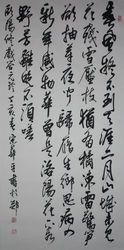 春風疑不到天涯二月山城未見
花殘雪壓枝猶有橘凍雷驚筍
欲抽芽夜聞歸雁生鄉思病入
新年感物華曾是洛陽花下客
野芳雖晚不須嗟
歐陽修戲答元珍 丁亥春